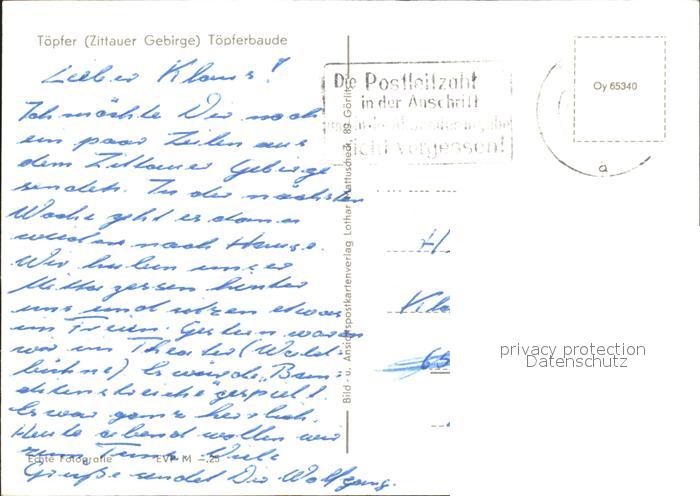 Töpfer (Zittauer Gebirge) Töpferbaude
Lieber Klaus!
Ich möchte Dir noch
ein paar Zeilen aus
dem Zittauer Gebirge
senden. In der nächsten
Woche geht es dann
wieder nach Hause.
Wir haben unser
Mittagessen hinter
uns und sitzen etwas
im Freien. Gestern waren
wir im Theater (Wald-
bühne) Es wurde „Ban-
ditenstreiche" gespielt.
Es war ganz herrlich.
Heute abend wollen wir
zum Tanz. Viele
Grüße sendet Dir Wolfgang.
Echte Fotografie EVP M –.25
Bild- u. Ansichtspostkartenverlag Lothar Kattuscheck, 89 Görlitz
Die Postleitzahl
in der Anschrift
nicht vergessen!
Oy 65340
a
Kla
65
privacy protection
Datenschutz